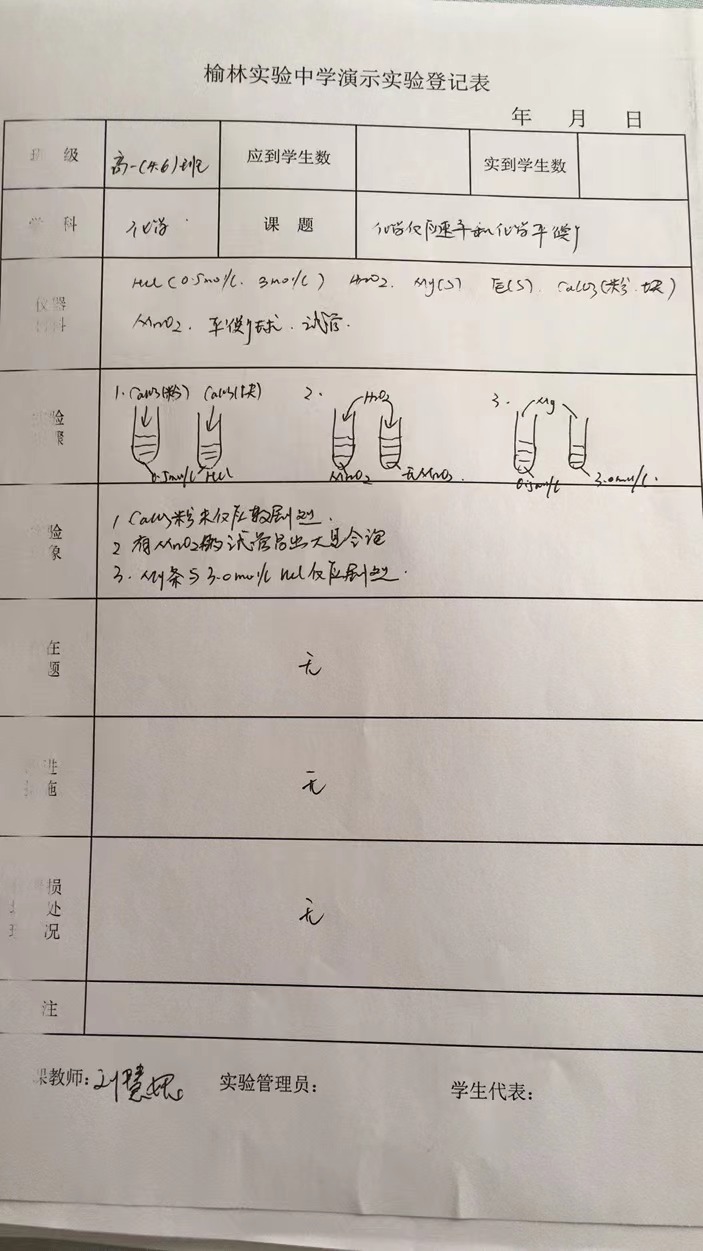 榆林实验中学演示实验登记表
年 月 日
班 级 高一(4.6)班 应到学生数 实到学生数
学 科 化学 课 题 化学反应速率和化学平衡
仪器 HCl(0.5mol/L. 3mol/L) H2O2. Mg(S) Fe(S). CaCO3(粉.块)
料 MnO2. 平衡球. 试管.
验 骤
1. CaCO3(粉) CaCO3(块) 2. H2O2 3. Mg
0.5mol/L HCl MnO2 无MnO2. 0.5mol/L 3.0mol/L.
验 象
1. CaCO3粉末反应较剧烈.
2 有MnO2的试管冒出大量气泡
3. Mg条与3.0mol/L HCl反应剧烈.
在 题 无
进 施 无
损 处 况 无
注
课教师: 刘慧 实验管理员: 学生代表: